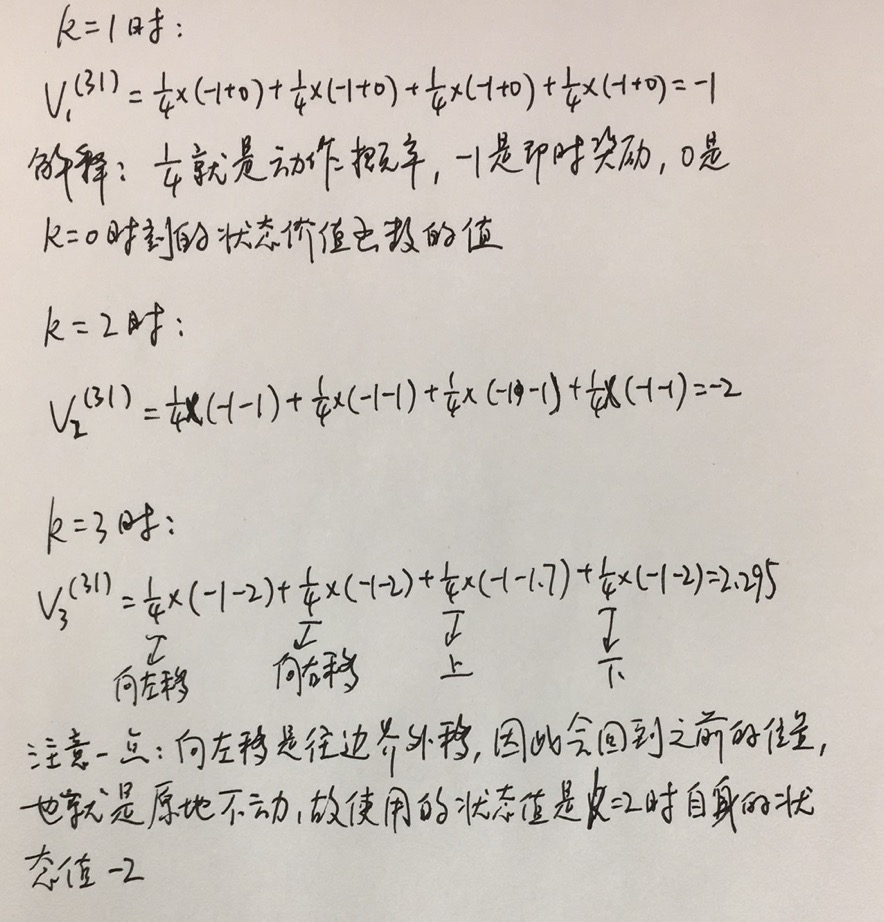 k=1时：
V₁⁽³¹⁾ = ¼×(-1+0)+¼×(-1+0)+¼×(-1+0)+¼×(-1+0)=-1
解释：¼就是动作概率，-1是即时奖励，0是
k=0时刻的状态价值函数的值
k=2时：
V₂⁽³¹⁾ = ¼×(-1-1)+¼×(-1-1)+¼×(-1-1)+¼×(-1-1)=-2
k=3时：
V₃⁽³¹⁾ = ¼×(-1-2)+¼×(-1-2)+¼×(-1-1.7)+¼×(-1-2)=2.295
向左移 向右移 上 下
注意一点：向左移是往边界外移，因此会回到之前的位置，
也就是原地不动，故使用的状态值是k=2时自身的状
态值-2